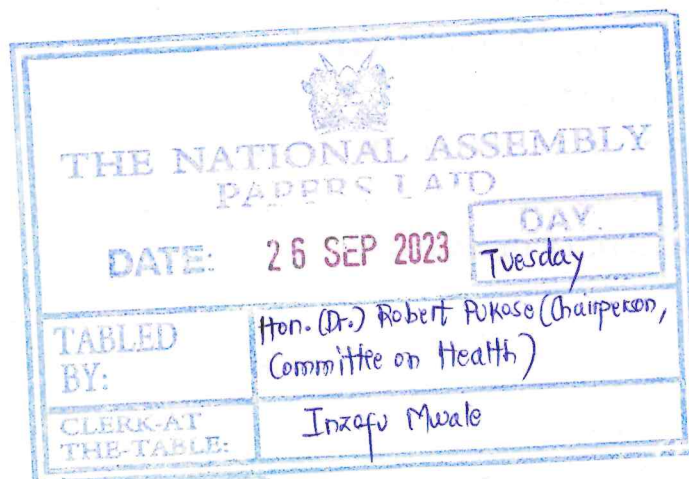 THE NATIONAL ASSEMBLY
PAPERS LAID
DATE: 26 SEP 2023
DAY.
Tuesday
TABLED BY:
Hon. (Dr.) Robert Pukose (Chairperson,
Committee on Health)
CLERK-AT THE-TABLE:
Inzofu Mwale